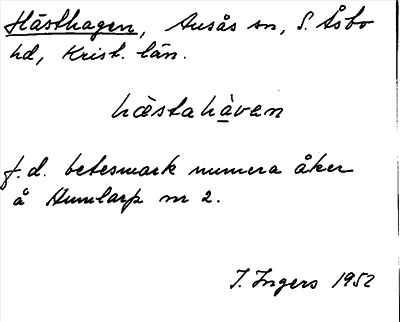 Hästhagen, Ausås sn, S. Åsbo
hd, Krist. län.
hästahàven
f.d. betesmark numera åker
å Humlarp nr 2.
I. Ingers 1952